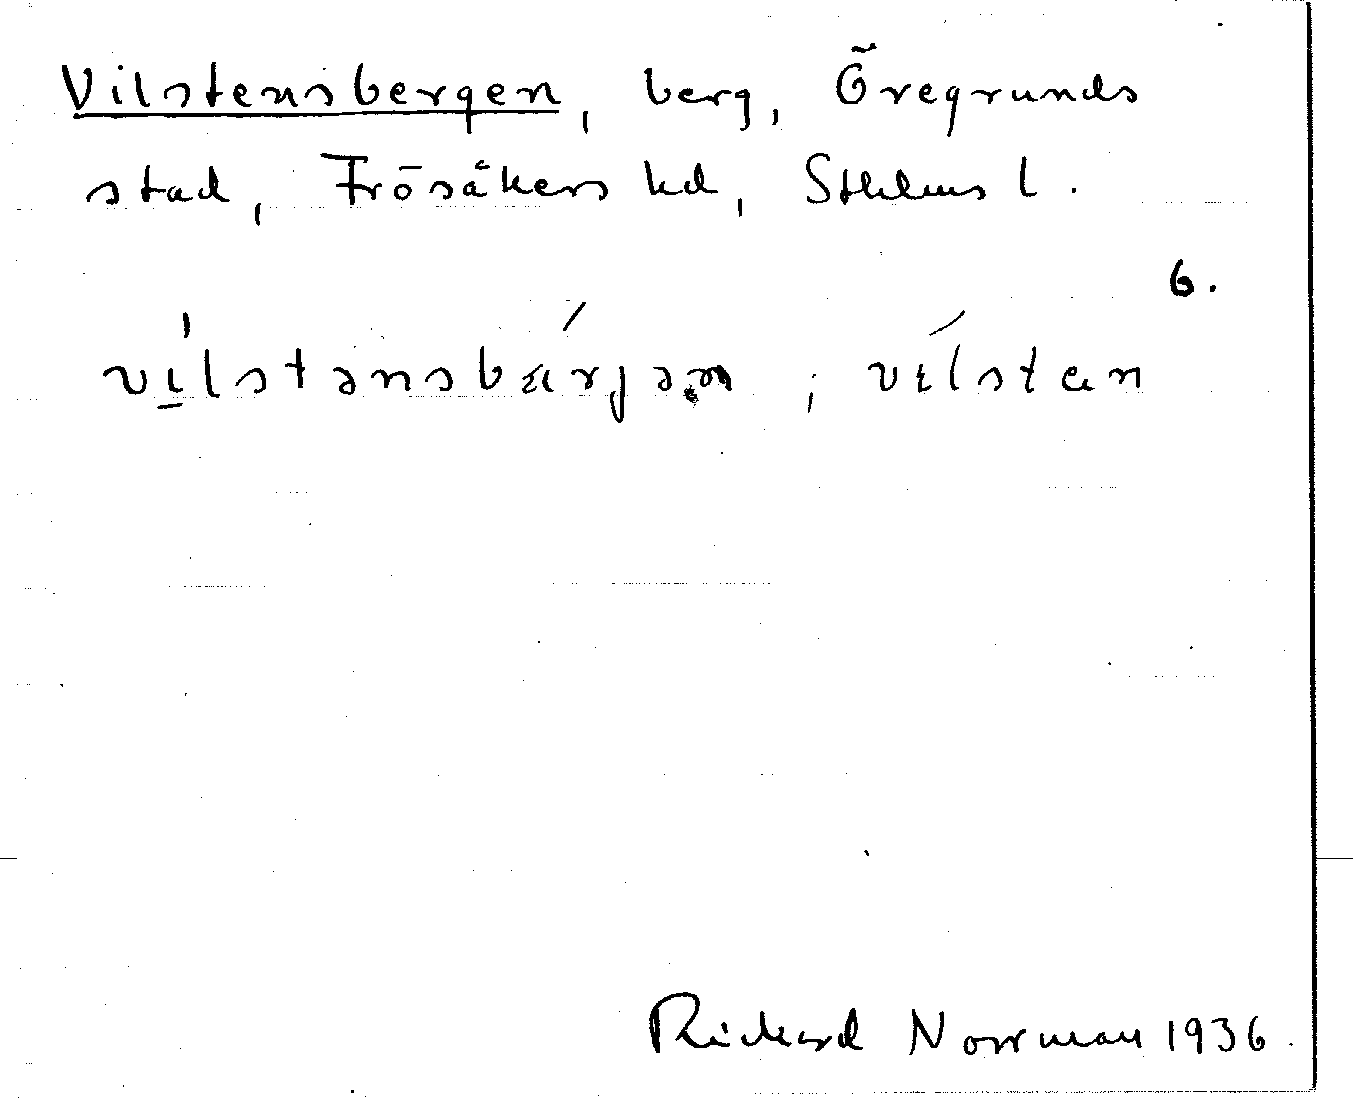 Vilstensbergen, berg, Öregrunds
stad, Frösåkers hd, Sthlms l.
6.
vi̠lstənsbærjən ; vilsten
Rickard Norrman 1936.